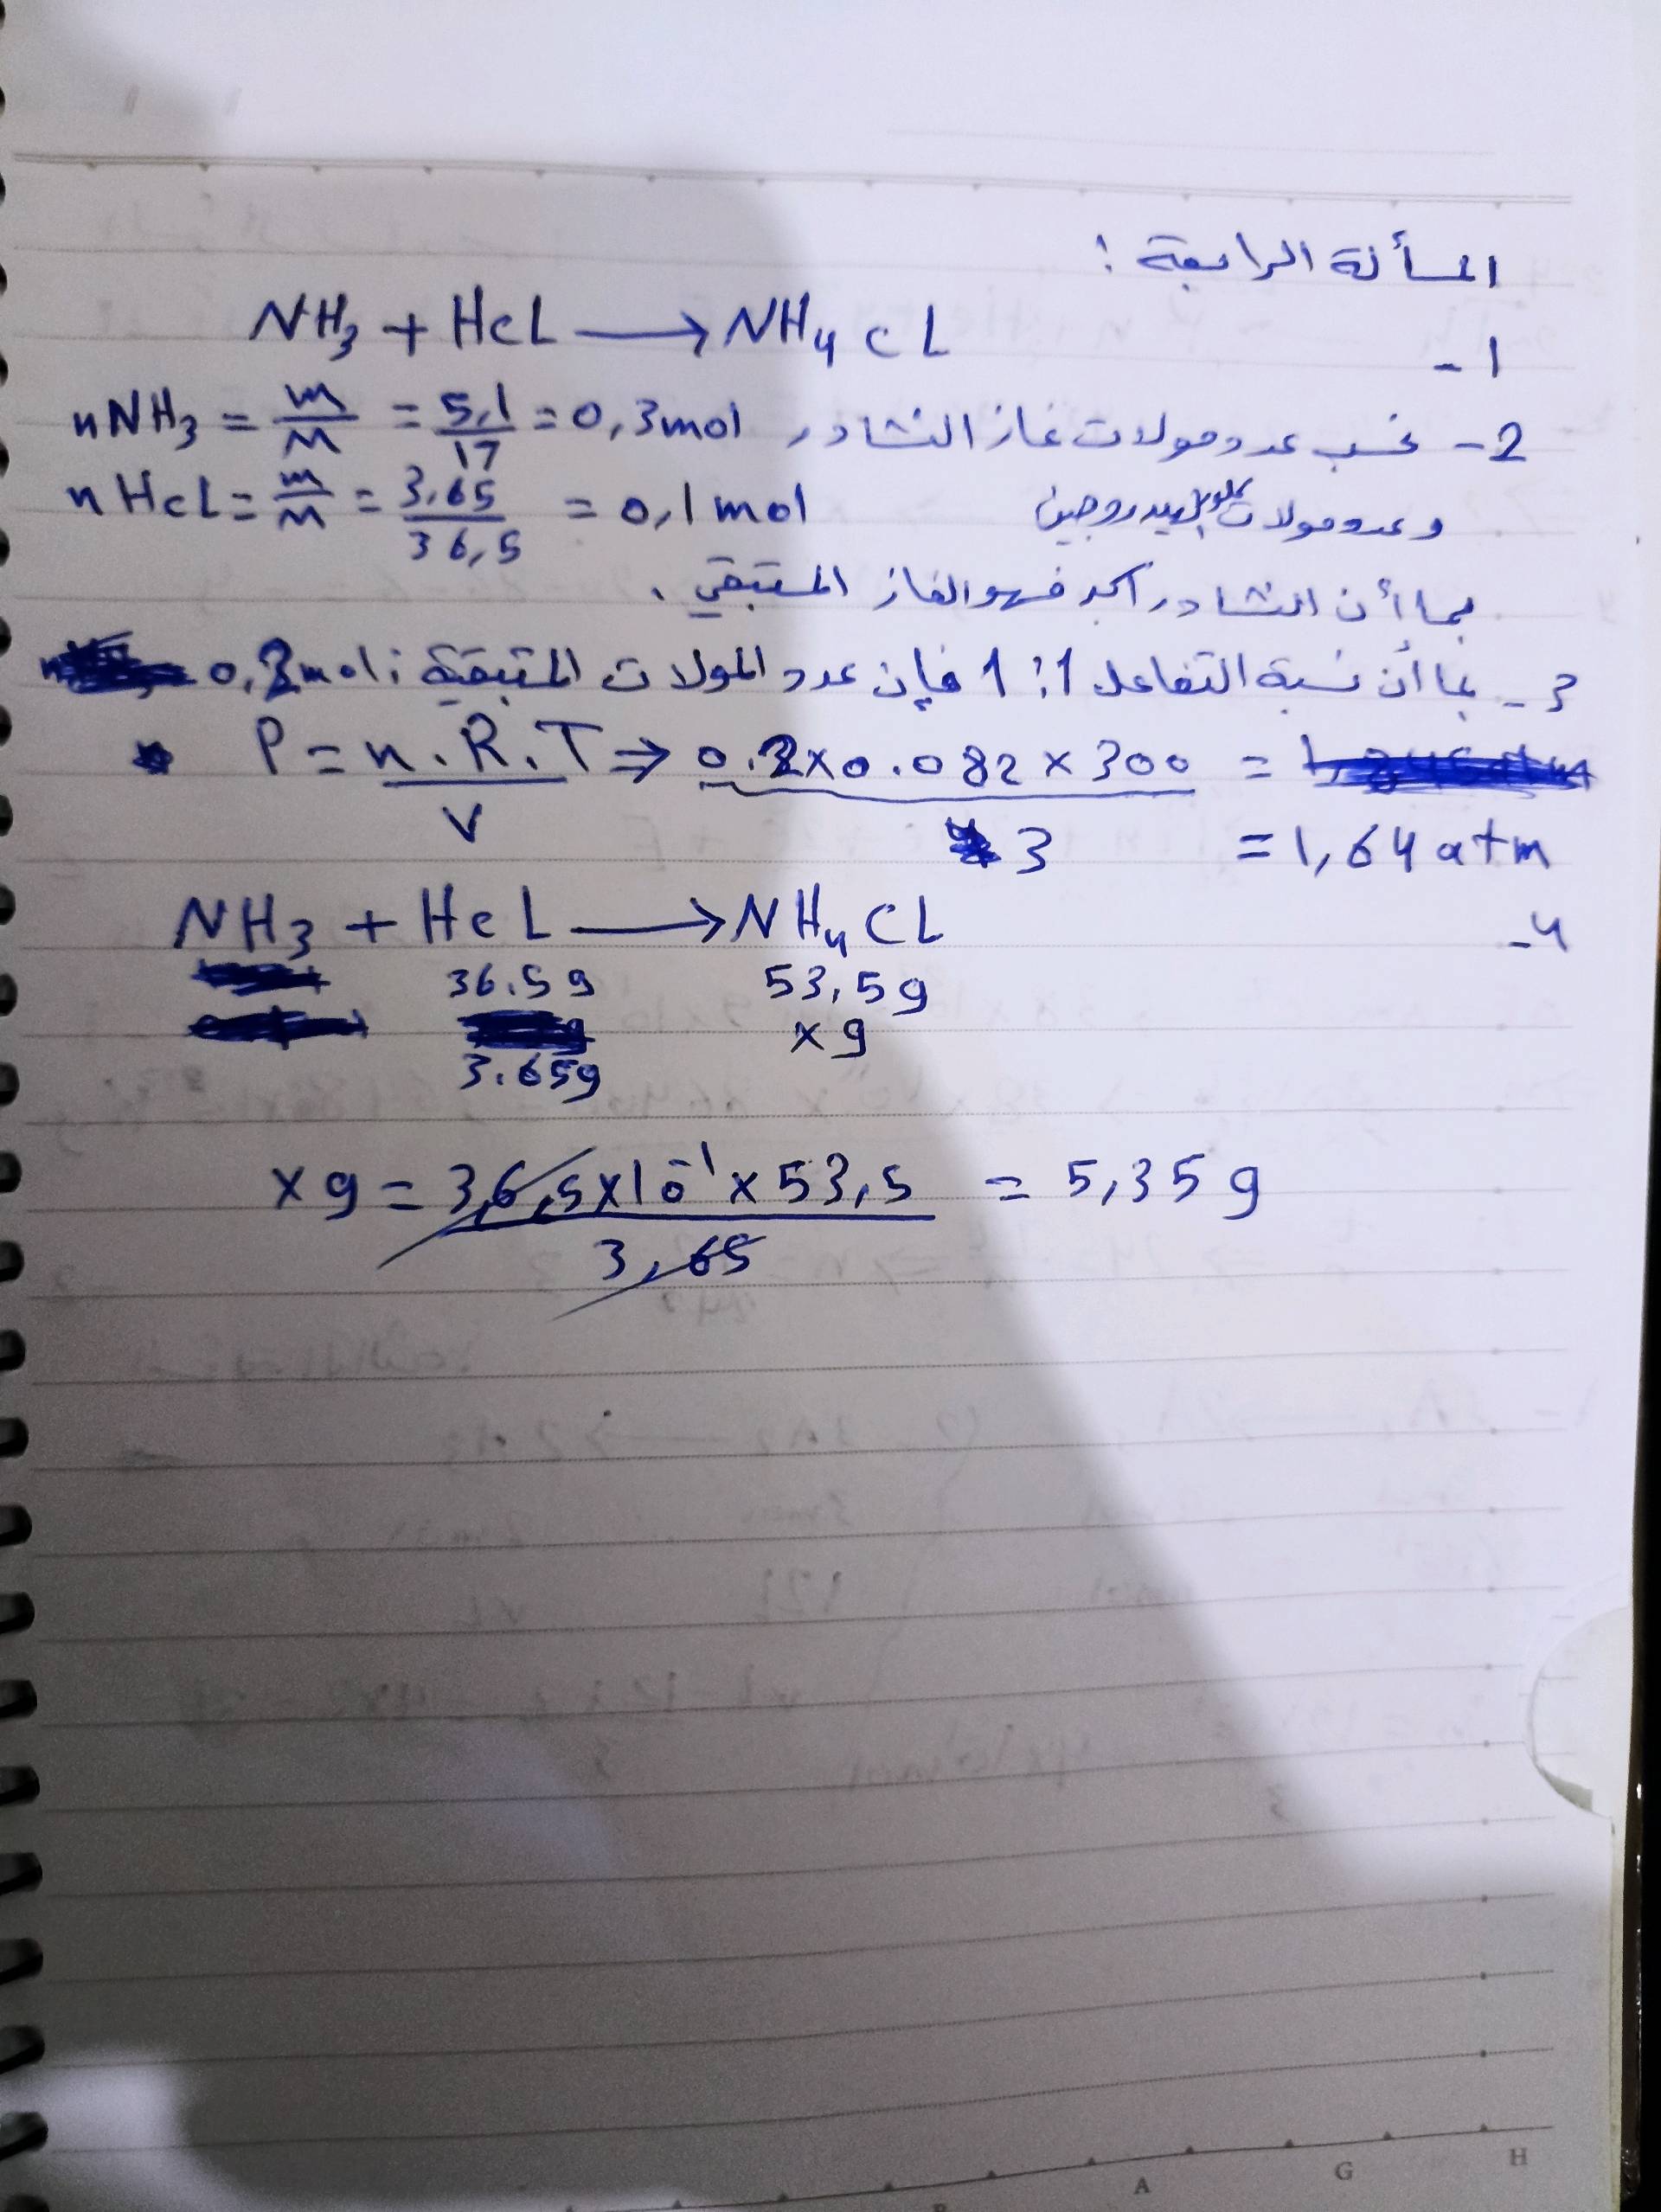 المسألة الرابعة :
1- NH3 + HcL → NH4 cL
2- نحسب عدد مولات غاز النشادر nNH3 = m/M = 5,1/17 = 0,3 mol
وعدد مولات كلور الهيدروجين n HcL = m/M = 3,65/36,5 = 0,1 mol
بما أن النشادر أكبر فهو الغاز المتبقي .
3- بما أن نسبة التفاعل 1:1 فإن عدد المولات المتبقية : 0,2mol
P = n.R.T/V ⇒ 0.2x0.082x300/3 =
= 1,64 atm
4- NH3 + HcL → NH4 CL
36.5g 53,5g
x g
3.65g
x g = 36,5x10-1 x 53,5 / 3,65 = 5,35 g
A G H